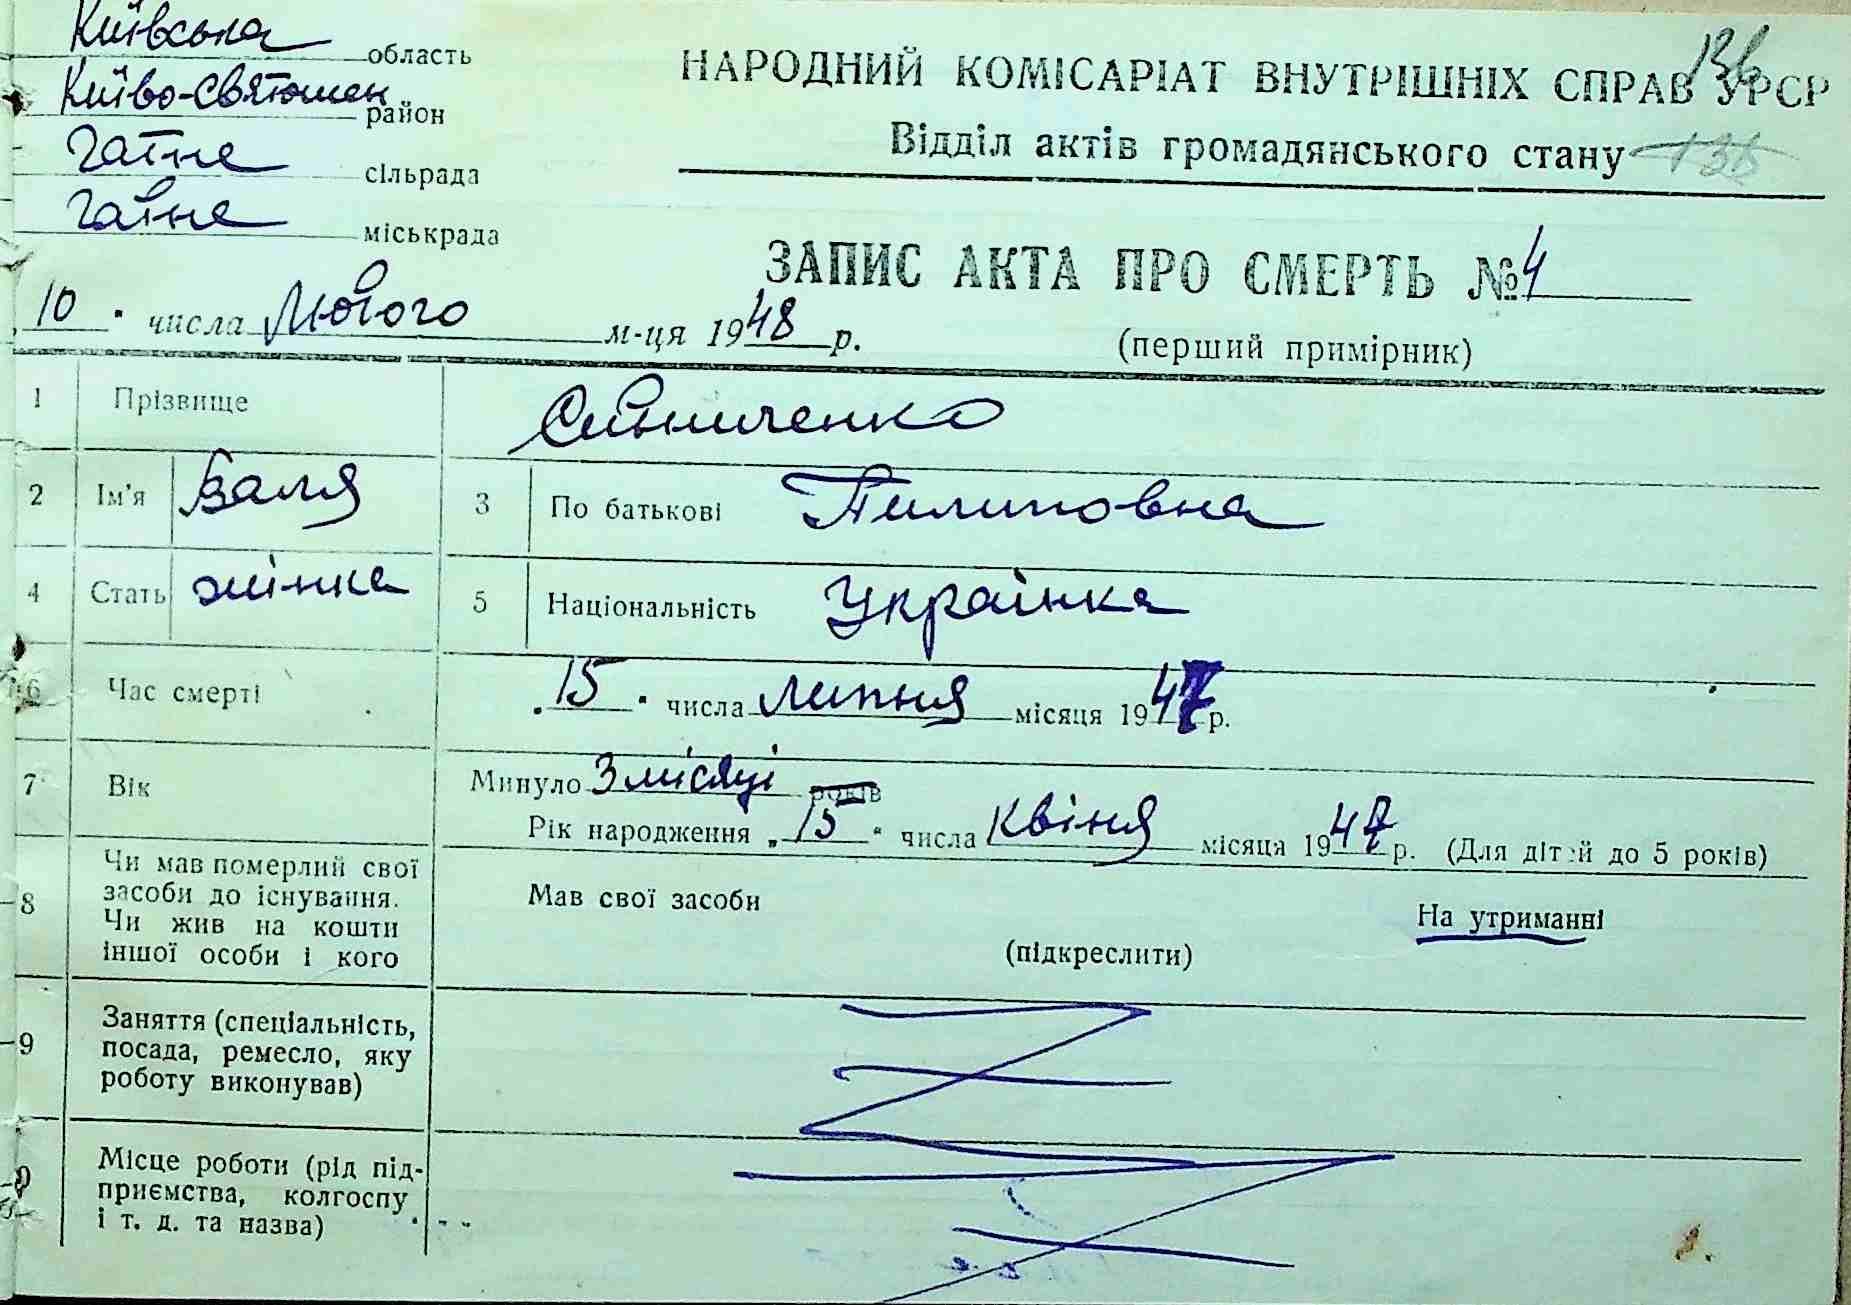 Київська область
Київо-Святошен район
Гатне сільрада
Гатне міськрада
НАРОДНИЙ КОМІСАРІАТ ВНУТРІШНІХ СПРАВ УРСР
Відділ актів громадянського стану
ЗАПИС АКТА ПРО СМЕРТЬ № 4
10 числа Лютого м-ця 1948 р.
(перший примірник)
1 Прізвище
2 Ім'я Валя 3 По батькові Пилиповна
4 Стать жінка 5 Національність Українка
6 Час смерті 15 числа липня місяця 1947 р.
7 Вік Минуло 3 місяці років
Рік народження „15“ числа Квіня місяця 1947 р. (Для дітей до 5 років)
8 Чи мав померлий свої
засоби до існування.
Чи жив на кошти
іншої особи і кого
Мав свої засоби На утриманні
(підкреслити)
9 Заняття (спеціальність,
посада, ремесло, яку
роботу виконував)
Місце роботи (рід під-
приємства, колгоспу
і т. д. та назва)